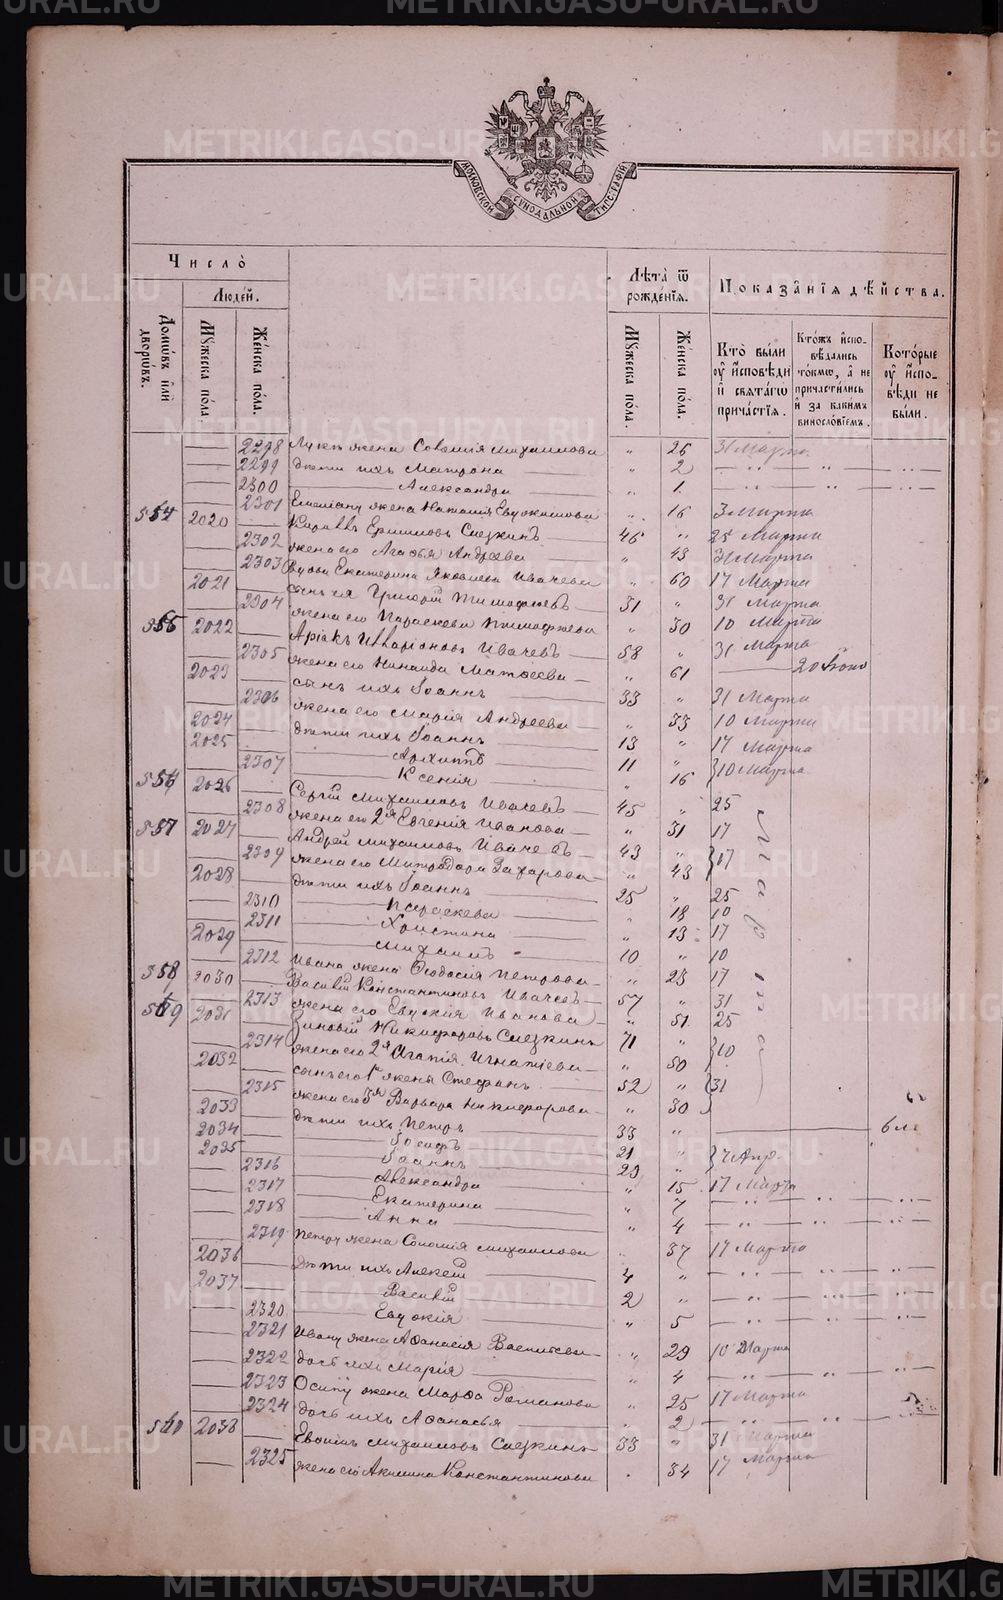 МОСКОВСКОЙ СѴНОДАЛЬНОЙ ТИПОГРАФІЙ
Число̀
Людей.
Домѡвъ и҆лѝ дворѡвъ.
Мꙋ́жеска по́ла.
Же́нска по́ла.
Лѣ́та ѿ рожде́нїѧ.
Мꙋ́жеска по́ла.
Же́нска по́ла.
Показа̑нїѧ дѣ́йства.
Кто̀ бы́ли ᲂу҆ и҆́сповѣди и҆ свѧта́гѡ прича́стїѧ.
Кто́жъ и҆спо- вѣ́дались то́кмѡ, а҆ не причасти́лись и҆ за каки́мъ винослѡ́вїемъ.
Кото́рые ᲂу҆ и҆́спо- вѣди не бы́ли.
2298 Луки жена Соломія Михаилова " 26 31 Марта
2299 дѣти ихъ Матрона " 2
2300 Александра " 1
2301 Емиліану жена Наталія Евдокимова " 16 3 Марта
554 2020 Ефимовъ Слезкинъ 46 " 25 Марта
2302 жена его Агафья Андреева " 43 31 Марта
2303 Вдова Екатерина Яковлева Ивачева " 60 17 Марта
2021 сынъ ея Григорій Тимофеевъ 31 " 31 Марта
2304 жена его Параскева Тимофеева " 30 10 Марта
555 2022 Иларіоновъ Ивачевъ 58 " 31 Марта
2305 жена его Матвеева " 61 20
2023 сынъ ихъ Іоаннъ 33 " 31 Марта
2306 жена его Марія Андреева " 33 10 Марта
2024 дѣти ихъ Іоаннъ 13 " 17 Марта
2025 Архиппъ 11 " 10 Марта
2307 Ксенія " 16
556 2026 Сергій Михаиловъ Ивачевъ 45 " 25 Марта
2308 жена его 2я Евгенія Иванова " 31 17
557 2027 Андрей Михаиловъ Ивачевъ 43 " 17
2309 жена его Митродора Захарова " 43
2028 дѣти ихъ Іоаннъ 25 " 25
2310 Параскева " 18 10
2311 Христина " 13 17
2029 Михаилъ 10 " 10
2312 Ивана жена Феодосія Петрова " 23 17
558 2030 Василій Константиновъ Ивачевъ 57 " 31
2313 жена его Евдокія Иванова " 51 25
559 2031 Зиновій Никифоровъ Слезкинъ 71 " 10
2314 жена его 2я Агапія Игнатіева " 50
2032 сынъ его 1й жены Стефанъ 52 " 31
2315 жена его 3я Варвара Никифорова " 50
2033 дѣти ихъ Петръ 33 "
2034 Іосифъ 21 " 7 Апр
2035 Іоаннъ 23 "
2316 Александра " 15 17 Марта
2317 Екатерина " 7
2318 Анна " 4
2319 Петру жена Соломія Михаилова " 37 17 Марта
2036 дѣти ихъ Алексій 4 "
2037 Василій 2 "
2320 Евдокія " 5
2321 Ивану жена Афанасія Васильева " 29 10 Марта
2322 дочь ихъ Марія " 4
2323 Осипу жена Марфа Романова " 25 17 Марта
2324 дочь ихъ Афанасья " 2
560 2038 Михаиловъ Слезкинъ 33 " 31 Марта
2325 жена его Акилина Константинова " 34 17 Марта